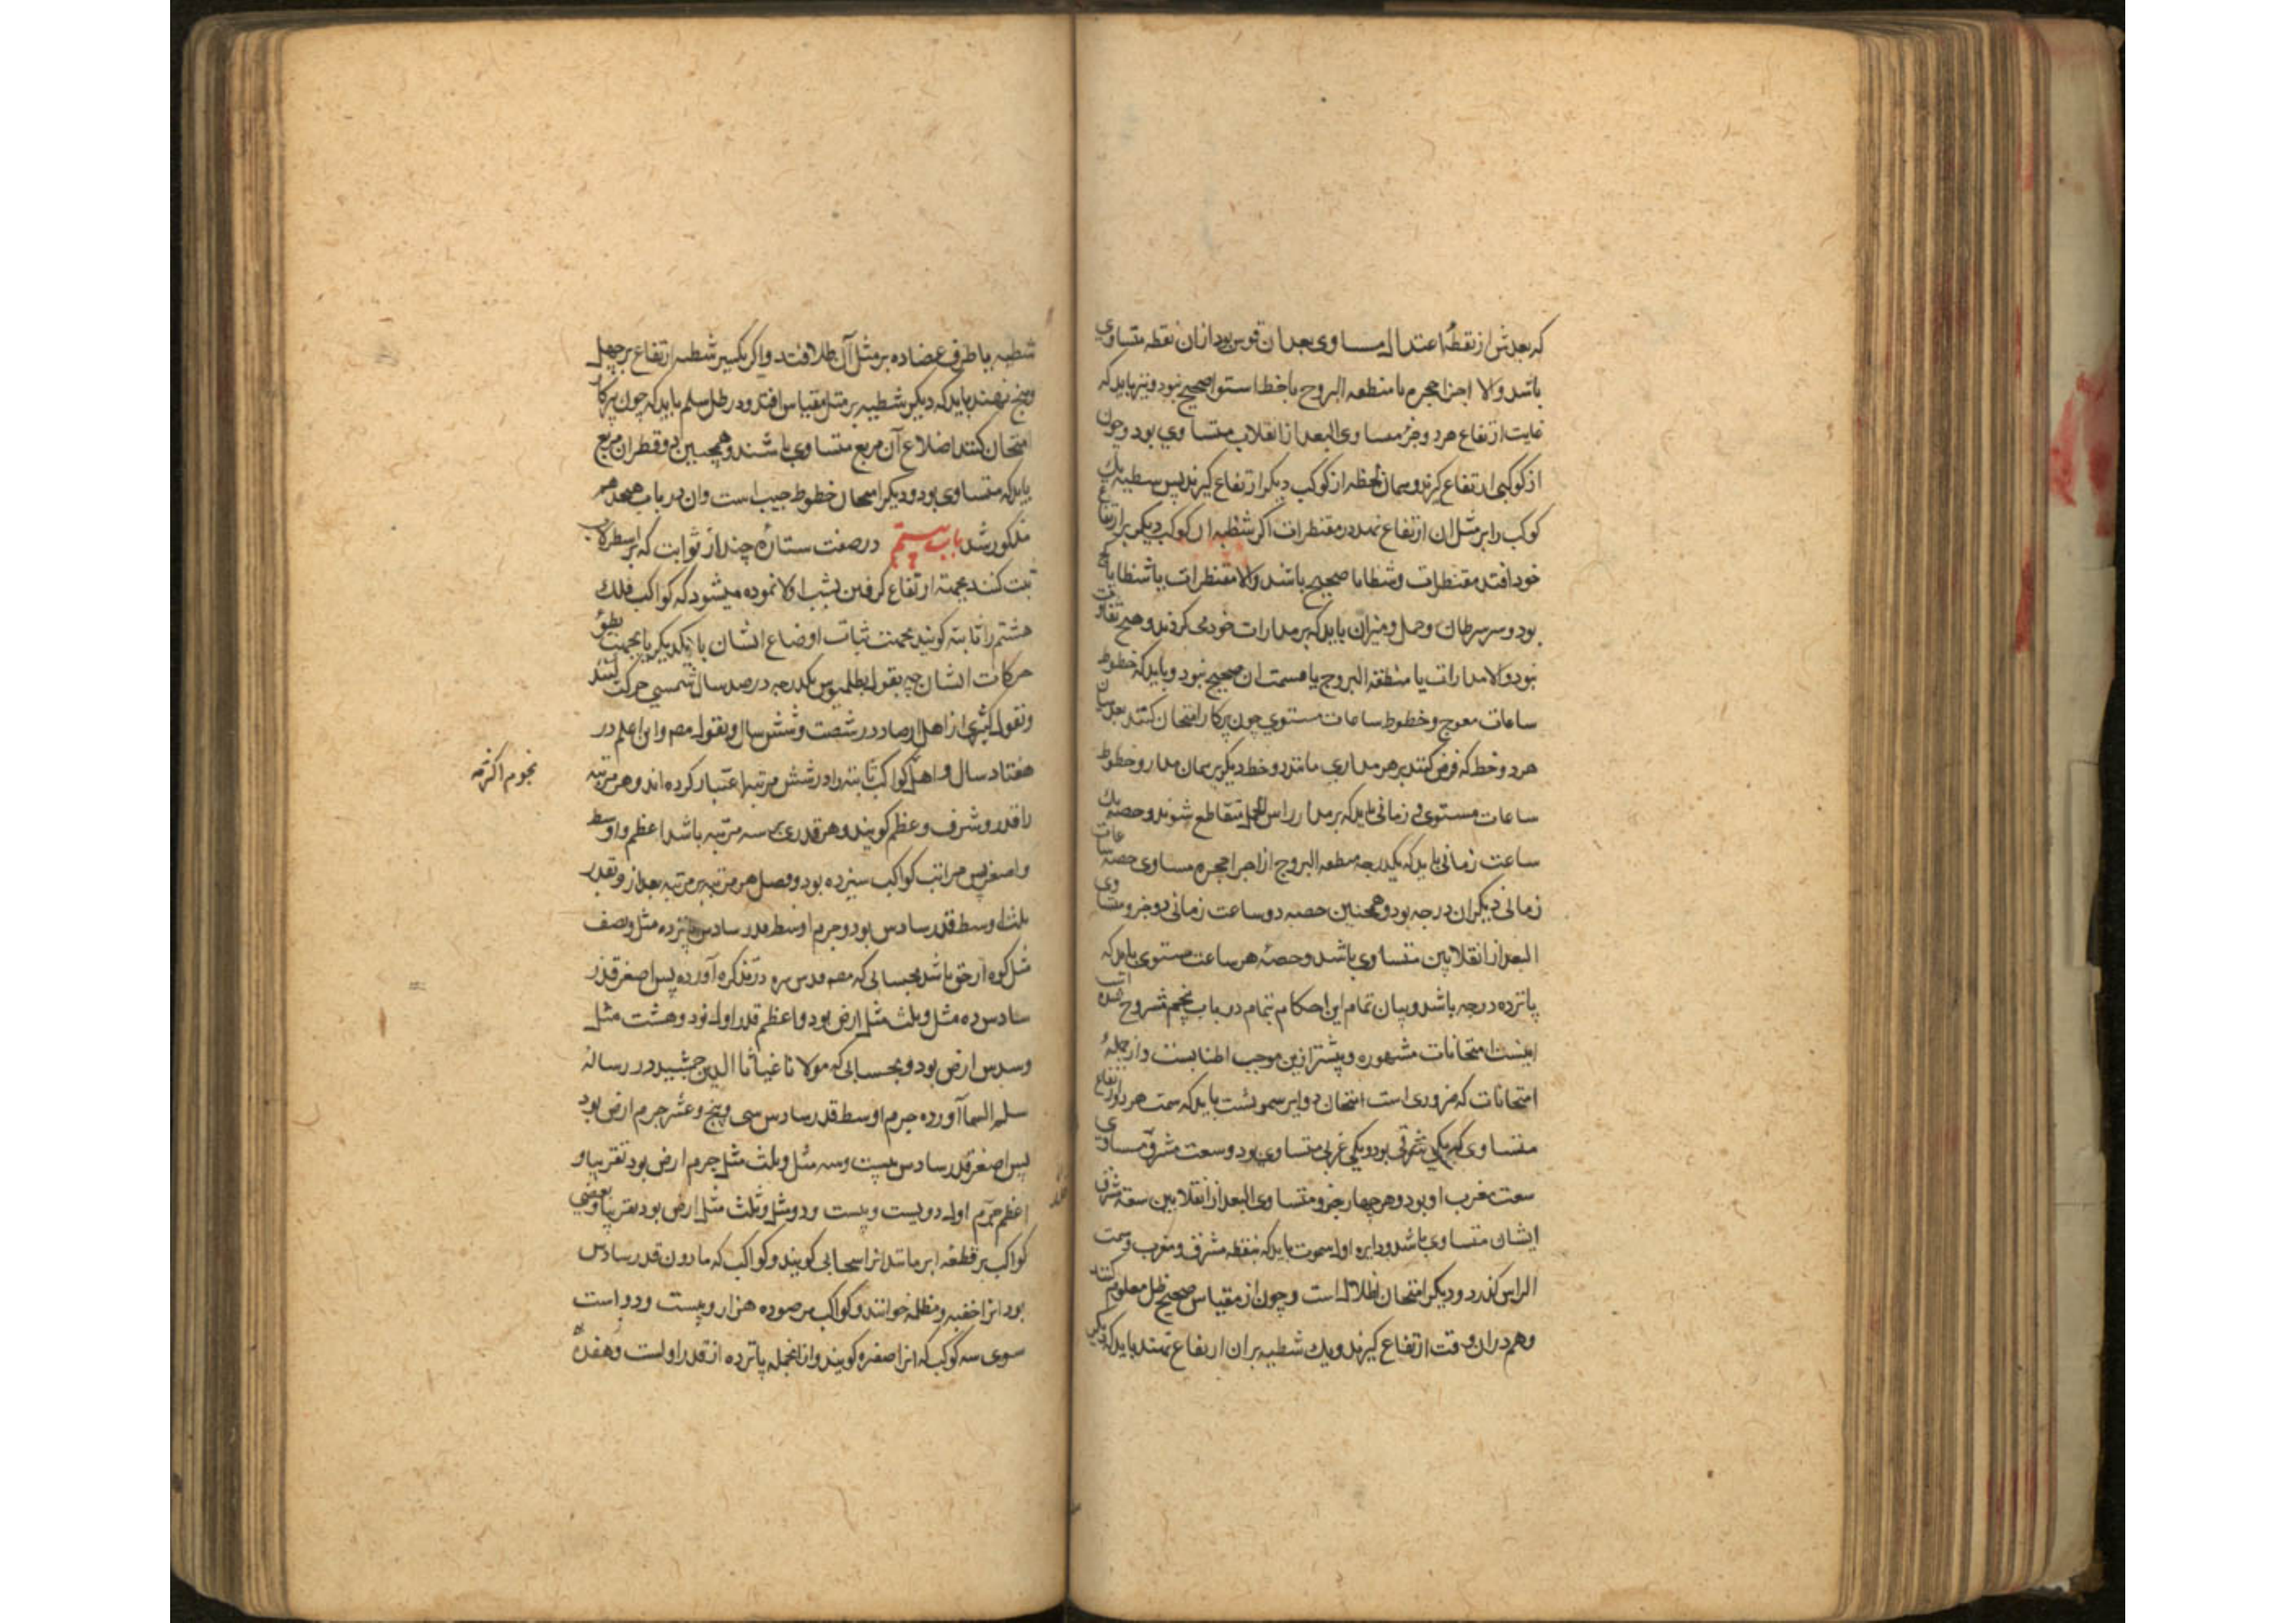 که بعدش از نقطهٔ اعتدال مساوی بعد ان قوس بود ازان نقطه متساوی
باشد والا اجزا حجره یا منطقه البروج یا خط استوا صحیح نبود و نیز باید که
غایت ارتفاع هر دو جزؤ مساوی البعد از انقلاب متساوی بود و چون
از کوکبی ارتفاع کیرند و همان لحظه از کوکب دیکر ارتفاع کیرند پس شطیه یک
کوکب را بر مثل ان ارتفاع نهند در مقنطرات اکر شظیه ان کوکب دیکر بر ارتفاع
خود افتد مقنطرات و شظایا صحیح باشند والا مقنطرات یا شظایا
بود و سر سرطان و حمل و میزان باید که بر مدارات خود می کردند و هیچ تفاوت
نبود والا مدارات یا منطقة البروج یا قسمت ان صحیح نبود و باید که خطوط
ساعات معوج و خطوط ساعات مستوی چون پرکار امتحان کنند بعد میان
هر دو خط که فرض کنند بر هر مداری مانند دو خط دیکر بر همان مدار و خطوط
ساعات مستوی و زمانی باید که بر مدار راس الحمل متقاطع شوند و حصه یک
ساعت زمانی باید که یکدرجه منطقه البروج از اجزا حجره مساوی حصه ساعات
زمانی دیکر ان درجه بود و همچنین حصه دو ساعت زمانی دو جزو متساوی
البعد از انقلابین متساوی باشد و حصهٔ هر ساعت مستوی باید که
پانزده درجه باشد و بیان تمام این احکام بتمام در باب پنجم مشروح شده است
اینست امتحانات مشهوره و بیشتر ازین موجب اطنابست و از جملهٔ
امتحانات که ضروری است امتحان دوایر سموتست باید که سمت هر دو ارتفاع
متساوی که یکی شرقی بود و یکی غربی متساوی بود و سعت مشرق مساوی
سعت مغرب او بود و هر چهار جزو متساوی البعد از انقلابین سعة مشرق
ایشان متساوی باشد و دایره اول سموت باید که بنقطه مشرق و مغرب و سمت
الراس کذرد و دیکر امتحان اظلال است و چون از مقیاس صحیح ظل معلوم کنند
و هم دران وقت ارتفاع کیرند و یک شطیه بران ارتفاع نهند باید که دیکر
شطیه یا طرف عضاده بر مثل آن ظل افتد و اکر یکسر شطیه ارتفاع بر چهل
و پنج نهند باید که دیکر شطیه بر مثل مقیاس افتد و در ظل سلم باید که چون پرکار
امتحان کنند اضلاع آن مربع متساوی باشند و همچنین دو قطر ان مربع
باید که متساوی بود و دیکر امتحان خطوط جیب است و ان در باب هیجدهم
مذکور شد باب بیستم در صفت ستارهٔ چند از ثوابت که بر اسطرلاب
ثبت کنند بجهة ارتفاع کرفتن بشب اولا نموده میشود که کواکب فلک
هشتم را ثابته کویند بجهت ثبات اوضاع ایشان با یکدیکر یا بجهت بطؤ
حرکات ایشان چه بقول بطلمیوس یکدرجه در صد سال شمسی حرکت کنند
و بقول اکثری از اهل ارصاد در شصت و شش سال و بقول مصـ و ابن اعلم در
هفتاد سال و اهل کواکب ثابته را در شش مرتبه اعتبار کرده اند و هر مرتبه
را قدر و شرف و عظم کویند و هر قدری بر سه مرتبه باشد اعظم و اوسط
و اصغر پس مراتب کواکب سیزده بود و فصل هر مرتبه بر مرتبه بعد ازو بقدر
ثلث اوسط قدر سادس بود و جرم اوسط قدر سادس پانزده مثل و نصف
مثل کوه ارض باشد بحسابی که مصـ قدس سره در تذکره آورده پس اصغر قدر
سادس ده مثل و ثلث مثل ارض بود و اعظم قدر اول نود و هشت مثل
و سدس ارض بود و بحسابی که مولانا غیاثا الدین جمشید در رسالهٔ
سلم السما آورده جرم اوسط قدر سادس سی و پنج و عشر جرم ارض بود
پس اصغر قدر سادس بیست و سه مثل و ثلث مثل جرم ارض بود تقریبا و
اعظم جرم اول دویست و بیست و دو مثل و ثلث مثل ارض بود تقریبا و بعضی
کواکب بر قطعه ابر ماند انرا سحابی کویند و کواکب که مادون قدر سادس
بود انرا خفیه و مظلمه خوانند و کواکب مرصوده هزار و بیست و دو است
سوی سه کوکب که انرا صفیره کویند و از انجمله پانزده از قدر اولست و هفده
نجوم اکثر مه